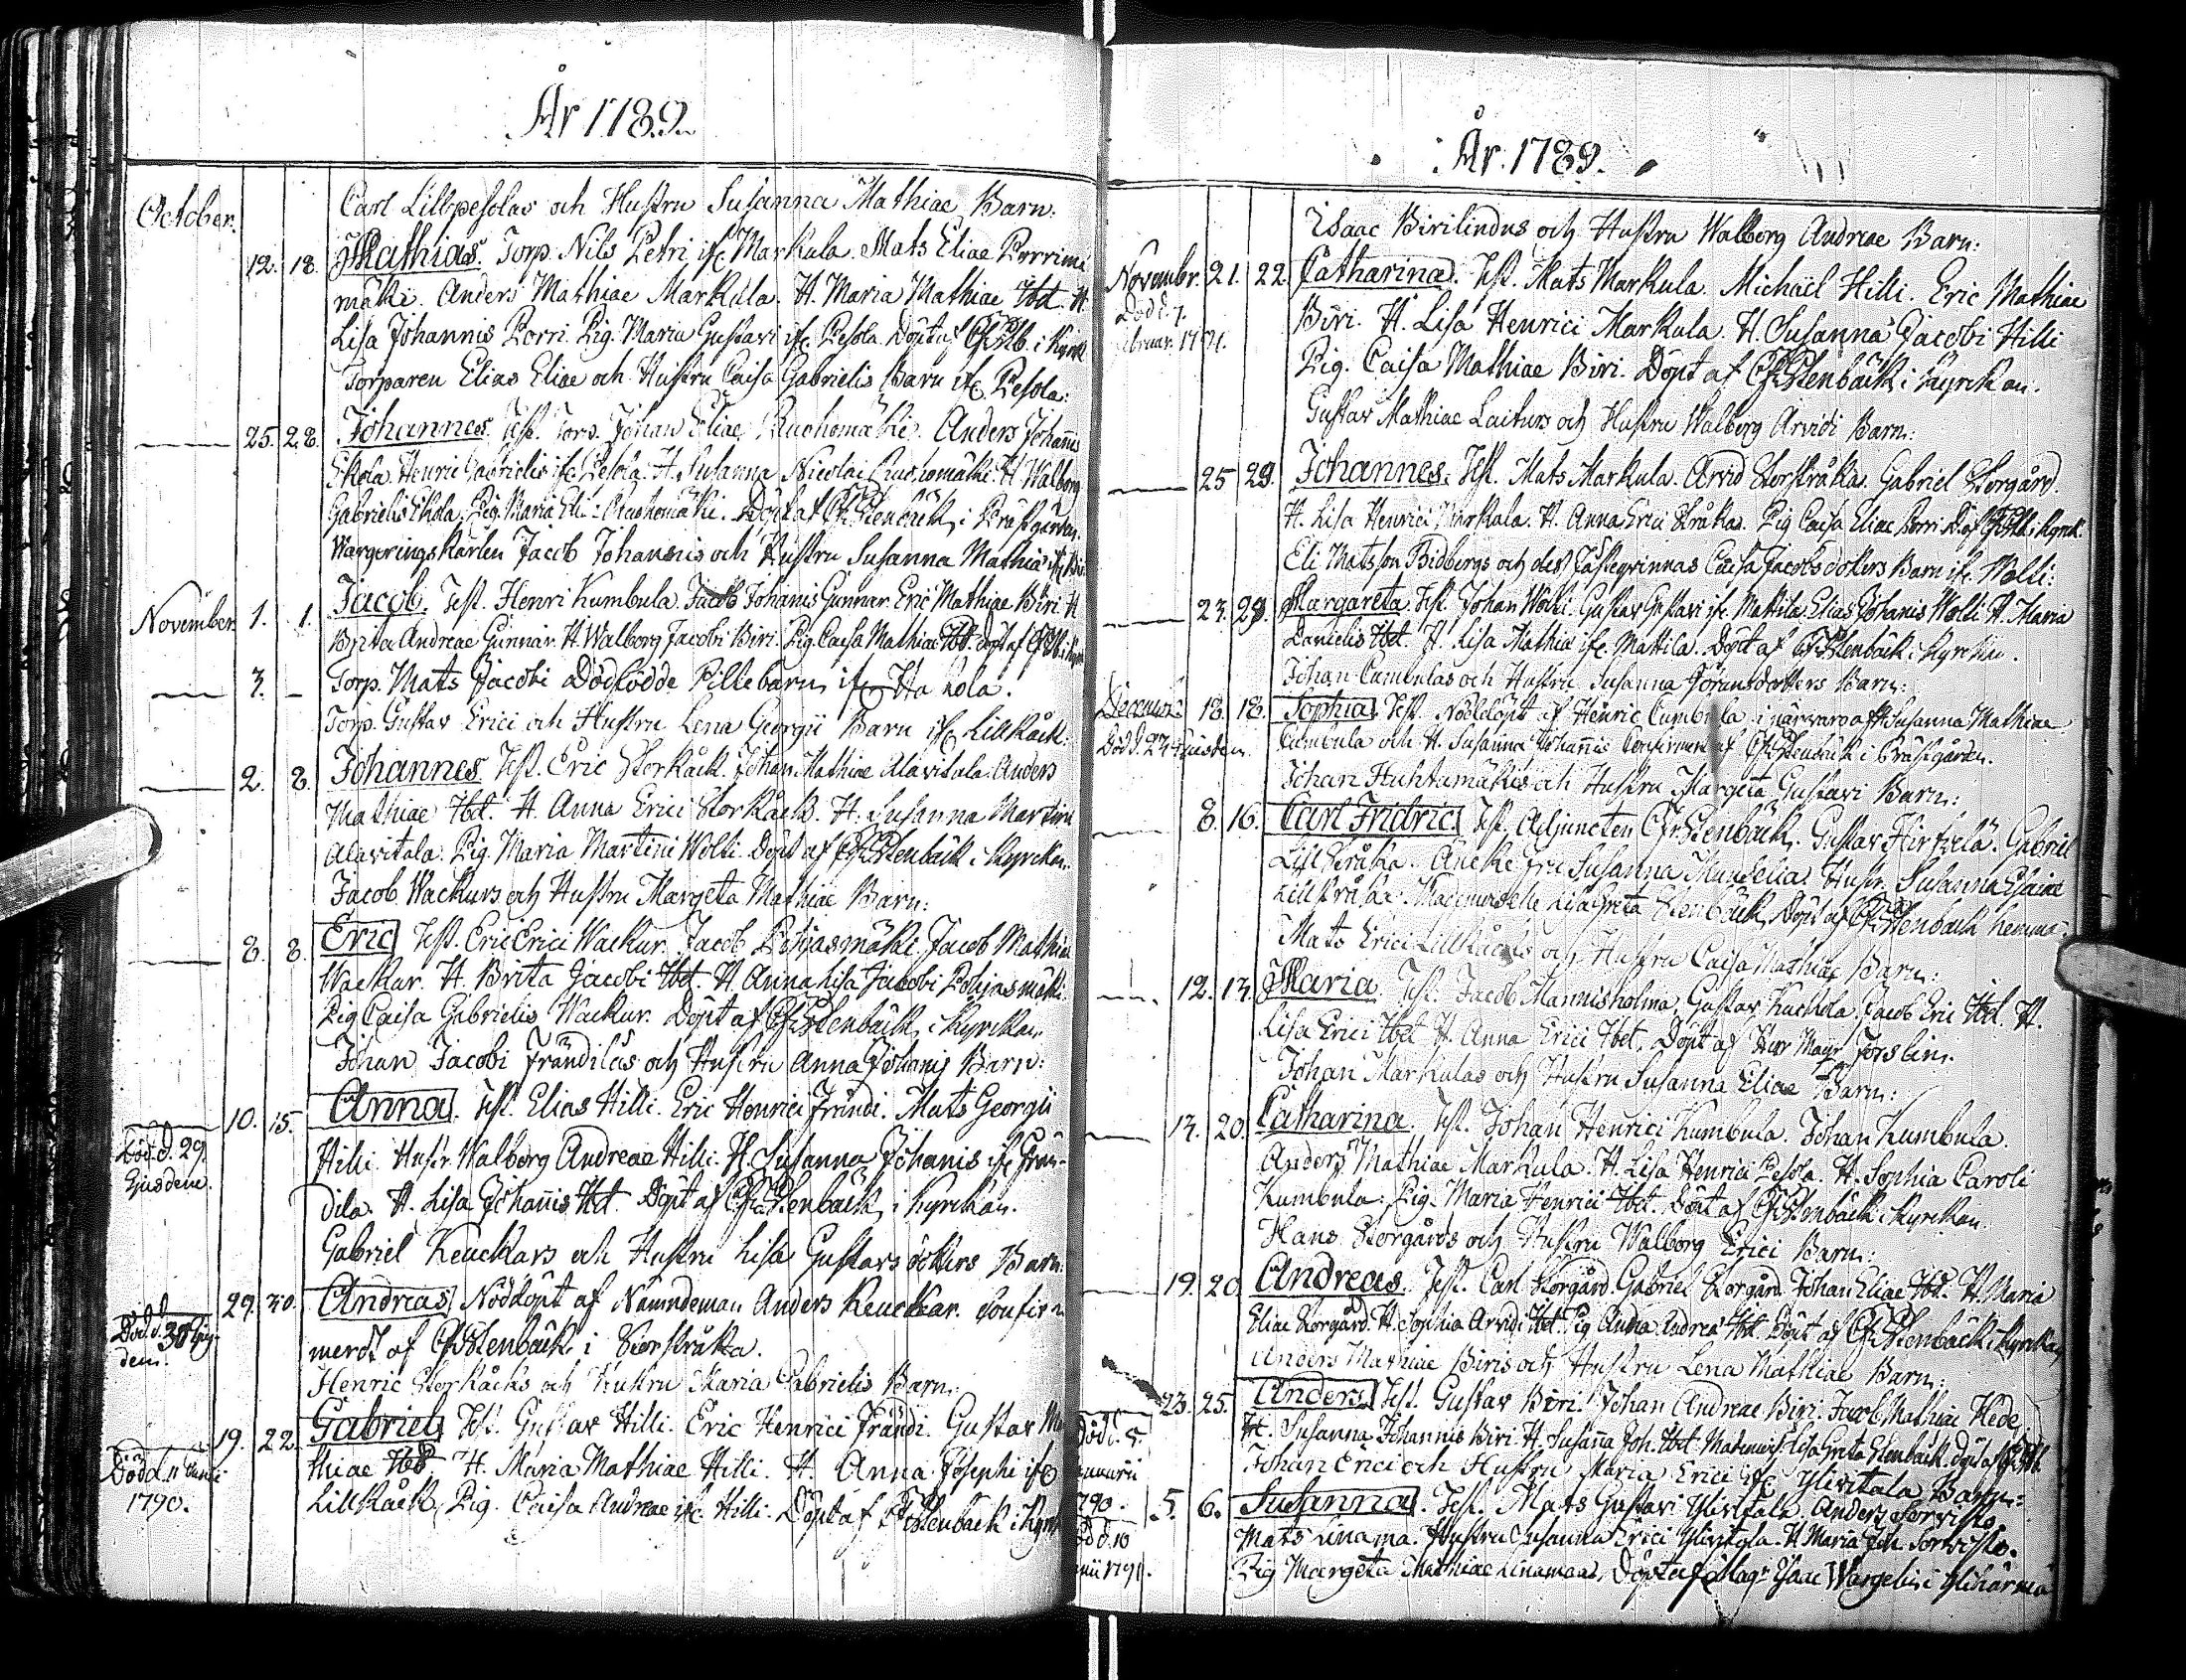 År 1789.
October.
Carl Lillpesolas och Hustru Susanna Mathiae Barn:
12. 18. Mathias. Torp. Nils Petri ifr. Markula. Mats Eliae
mäki. Anders Mathiae Markula. H. Maria Mathiae Ibd. H.
Lisa Johannis Porri. Pig. Maria Gustavi ifr. Pesola. Döpt af
Torparen Elias Eliae och Hustru Caisa Gabrielis Barn ifr. Pesola:
25. 28. Johannes. Test. Torp. Johan Eliae Ruohomäki. Anders Johanis
Ekola. Henric Gabrielis ifr. Pesola. H. Susanna Nicolai Ruohomäki. H. Walborg
Gabrielis Ekola. Pig. Maria Eli: Ruohomäki. Döpt af Stenbäck, i Prästgården.
Wargeringskarlen Jacob Johannis och Hustru Susanna Mathiae
November 1. 1. Jacob. Test. Henric Kumbula. Jacob Johanis Gunnar. Eric Mathiae Biri. H.
Brita Andreae Gunnar. H. Walborg Jacobi Biri. Pig. Caisa Mathiae Ibd. Döpt af
3. – Torp. Mats Jacobi Dödfödde Piltebarn, ifr.
Torp. Gustav Erici och Hustru Lena Georgii Barn ifr. Lillkåck:
2. 8. Johannes. Test. Eric Storkåck. Johan Mathiae Alavitala. Anders
Mathiae Ibd. H. Anna Erici Storkåck. H. Susanna Martini
Alavitala. Pig. Maria Martini Wolti. Döpt af Stenbäck i Kyrckan.
Jacob Wackurs och Hustru Margeta Mathiae Barn:
8. 8. Eric. Test. Eric Erici Wackur. Jacob Pohjasmäki. Jacob Mathiae
Wackur. H. Brita Jacobi Ibd. H. Anna Lisa Jacobi Pohjasmäki.
Pig. Caisa Gabrielis Wackur. Döpt af Stenbäck, i Kyrckan.
Johan Jacobi Frändilas och Hustru Anna Johanis Barn:
10. 15. Anna. Test. Elias Hilli. Eric Henrici Frändi. Mats Georgii
Död d. 29.
Ejusdem.
Hilli. Hustr. Walborg Andreae Hilli. H. Susanna Johanis ifr. Frän-
dila. H. Lisa Johañis Ibd. Döpt af Stenbäck, i Kyrckan.
Gabriel Keuckars och Hustru Lisa Gustavs dotters Barn:
29. 30. Andreas. Nöddöpt af Nämndeman Anders Keuckar. Confir-
Död d. 30
dem.
merdt af Stenbäck, i Storstråka.
Henric Storkåcks och Hustru Maria Gabrielis Barn:
19. 22. Gabriel. Test. Gustav Hilli. Eric Henrici Frändi. Gustav
Död d. 11
1790.
thiae Ibd. H. Maria Mathiae Hilli. H. Anna Josephi ifr.
Lillkåck. Pig. Caisa Andreae ifr. Hilli. Döpt af Stenbäck i
År. 1789.
Isaac Birilindus och Hustru Walborg Andreae Barn:
Novembr. 21. 22. Catharina. Test. Mats Markula. Michaël Hilli. Eric Mathiae
Död d. 7.
Biri. H. Lisa Henrici Markula. H. Susanna Jacobi Hilli
Pig. Caisa Mathiae Biri. Döpt af Stenbäck i Kyrckan.
Gustav Mathiae Laiturs och Hustru Walborg Arvidi Barn:
25 29. Johannes. Test. Mats Markula. Arvid Storstråka. Gabriel Storgård.
H. Lisa Henrici Markala. H. Anna Erici Stråkas. Pig. Caisa Eliae Porri.
Eli Matsson Bidbergs och des Fästeqvinnas Caisa Jacobsdotters Barn ifr. Wolti:
23. 29. Margareta. Test. Johan Wolti. Gustav Gustavi ifr. Mattila. Elias Johanis Wolti. H. Maria
Danielis Ibd. H. Lisa Mathiae ifr. Mattila. Döpt af Stenbäck i Kyrckan.
Johan Cumbulas och Hustru Susanna Göransdotters Barn:
December 18. 18. Sophia. Test. Nöddöpt af Henric Cumbula i närvaro af H. Susanna Mathiae
Cumbula och H. Susanna Johañis. Confirmerad af Stenbäck i Prästgården.
Johan Huhtamäkis och Hustru Margeta Gustavi Barn:
8. 16. Carl Fridric. Test. Adjuncten Stenbäck. Gustav Hirfvelä. Gabriel
Lillstråka. Änckefru Susanna Mundelia. Hustr. Susanna Esaiae
Lillstråka. Mademoiselle Lisa Greta Stenbäck. Döpt af Stenbäck hemma.
Mats Erici Lillkåcks och Hustru Caisa Mathiae Barn:
12. 13. Maria. Test. Jacob Mannisholma. Gustav Kuckola. Jacob Eric Ibd. H.
Lisa Erici Ibd. H. Anna Erici Ibd. Döpt af Herr Magr. Forslin.
Johan Markulas och Hustru Susanna Eliae Barn:
14. 20. Catharina. Test. Johan Henrici Kumbula. Johan Kumbula.
Anders Mathiae Markula. H. Lisa Henrici Pesola. H. Sophia Caroli
Kumbula. Pig. Maria Henrici Ibd. Döpt af Stenbäck i Kyrckan.
Hans Storgårds och Hustru Walborg Erici Barn:
19. 20. Andreas. Test. Carl Storgård. Gabriel Storgård. Johan Eliae Ibd. H. Maria
Eliae Storgård. H. Sophia Arvidi Ibd. Pig. Anna Andreae Ibd. Döpt af Stenbäck i Kyrckan
Anders Mathiae Biris och Hustru Lena Mathiae Barn:
23. 25. Anders. Test. Gustav Biri. Johan Andreae Biri. Jacob Mathiae Hede
Död d. 5.
1790.
H. Susanna Johannis Biri. H. Susanna Joh. Ibd. Lisa Greta Stenbäck. Döpt af
Johan Erici och Hustru Maria Erici ifr. Ylivitala Barn:
5. 6. Susanna. Test. Mats Gustavi Ylivitala. Anders Sorvisto.
Död d. 10
1791.
Mats Linama. Hustru Susanna Erici Ylivitala. H. Maria Joh. Sorvisto.
Pig. Margeta Mathiae Linamaas. Döpt af Magr. Isaac Wargelin i Ylihärmä